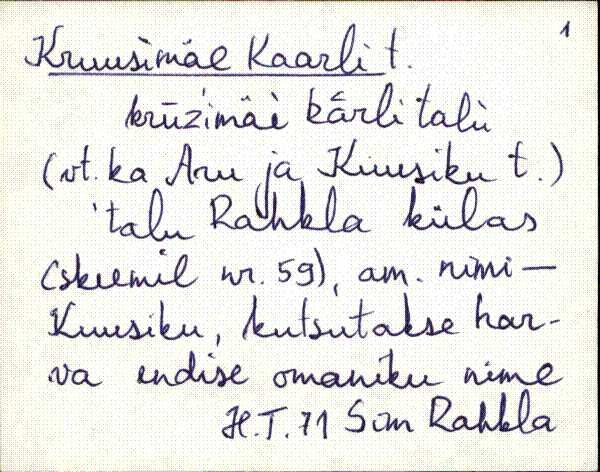 1
Kruusimäe Kaarli t.
krūz'imäè kārli talù
(vt. ka Aru ja Kuusiku t.)
'talu Rahkla külas
(skeemil nr. 59), am. nimi —
Kuusiku, kutsutakse har-
va endise omaniku nime
H.T. 71 Sim Rahkla